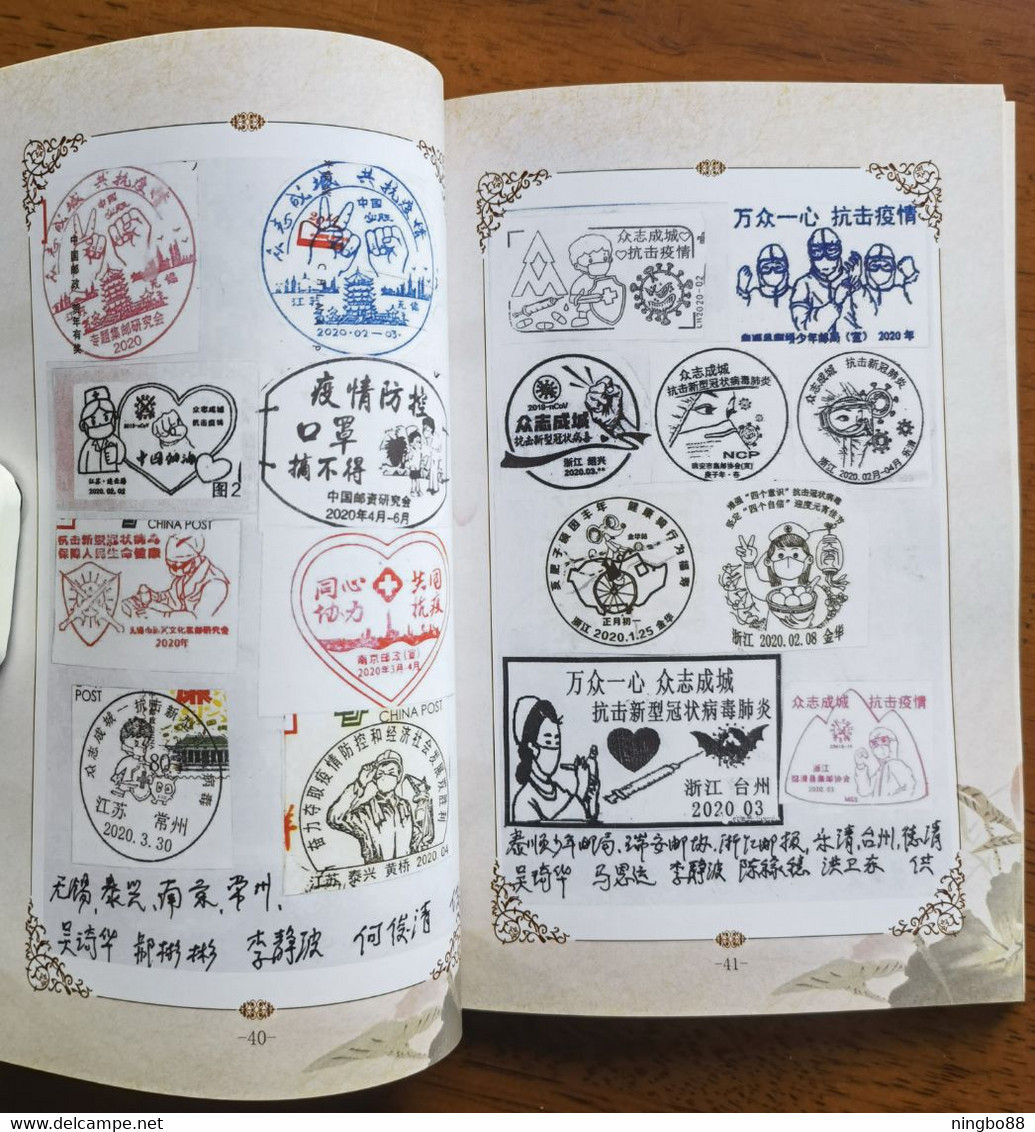 众志成城 共抗疫情
中国
中国邮政 周年有奖
专题集邮研究会
2020
众志成城 共抗疫情
中国
必胜
江苏 无锡
2020·02-03
众志成城
抗击疫情
2019-nCoV
中国加油
2020.02.02
图2
疫情防控
口罩
摘不得
中国邮资研究会
2020年4月-6月
CHINA POST
抗击新型冠状病毒
保障人民生命健康
文化集邮研究会
2020年
同心 共同
协力 抗疫
南京
2020年3月-4月
POST
众志成城—抗击新型
80
病毒
江苏 常州
2020.3.30
CHINA POST
奋力夺取疫情防控和经济社会发展双胜利
江苏,泰兴 黄桥 2020 04
无锡,泰兴,南京,常州,
吴琦华 郝彬彬 李静波 何俊清
-40-
众志成城
抗击疫情
2020-02
万众一心 抗击疫情
少年邮局(宣) 2020 年
2019-nCoV
众志成城
抗击新型冠状病毒
浙江 绍兴
2020.03.**
众志成城
抗击新型冠状病毒肺炎
NCP
瑞安市集邮协会(宣)
庚子年·春
众志成城 抗击新冠肺炎
浙江 2020.02月-04月 乐清
亥肥子硕因丰年 健康骑行为福寿
金华站
正月初一
浙江 2020.1.25 金华
增强“四个意识”抗击冠状病毒
坚定“四个自信”迎度元宵佳节
浙江 2020.02.08 金华
万众一心 众志成城
抗击新型冠状病毒肺炎
浙江 台州
2020 03
众志成城 抗击疫情
浙江
集邮协会
2020.03
泰顺少年邮局,瑞安邮协,浙江邮报,乐清,台州,
吴琦华 马恩运 李静波 陈 洪卫东 供
-41-
ningbo88